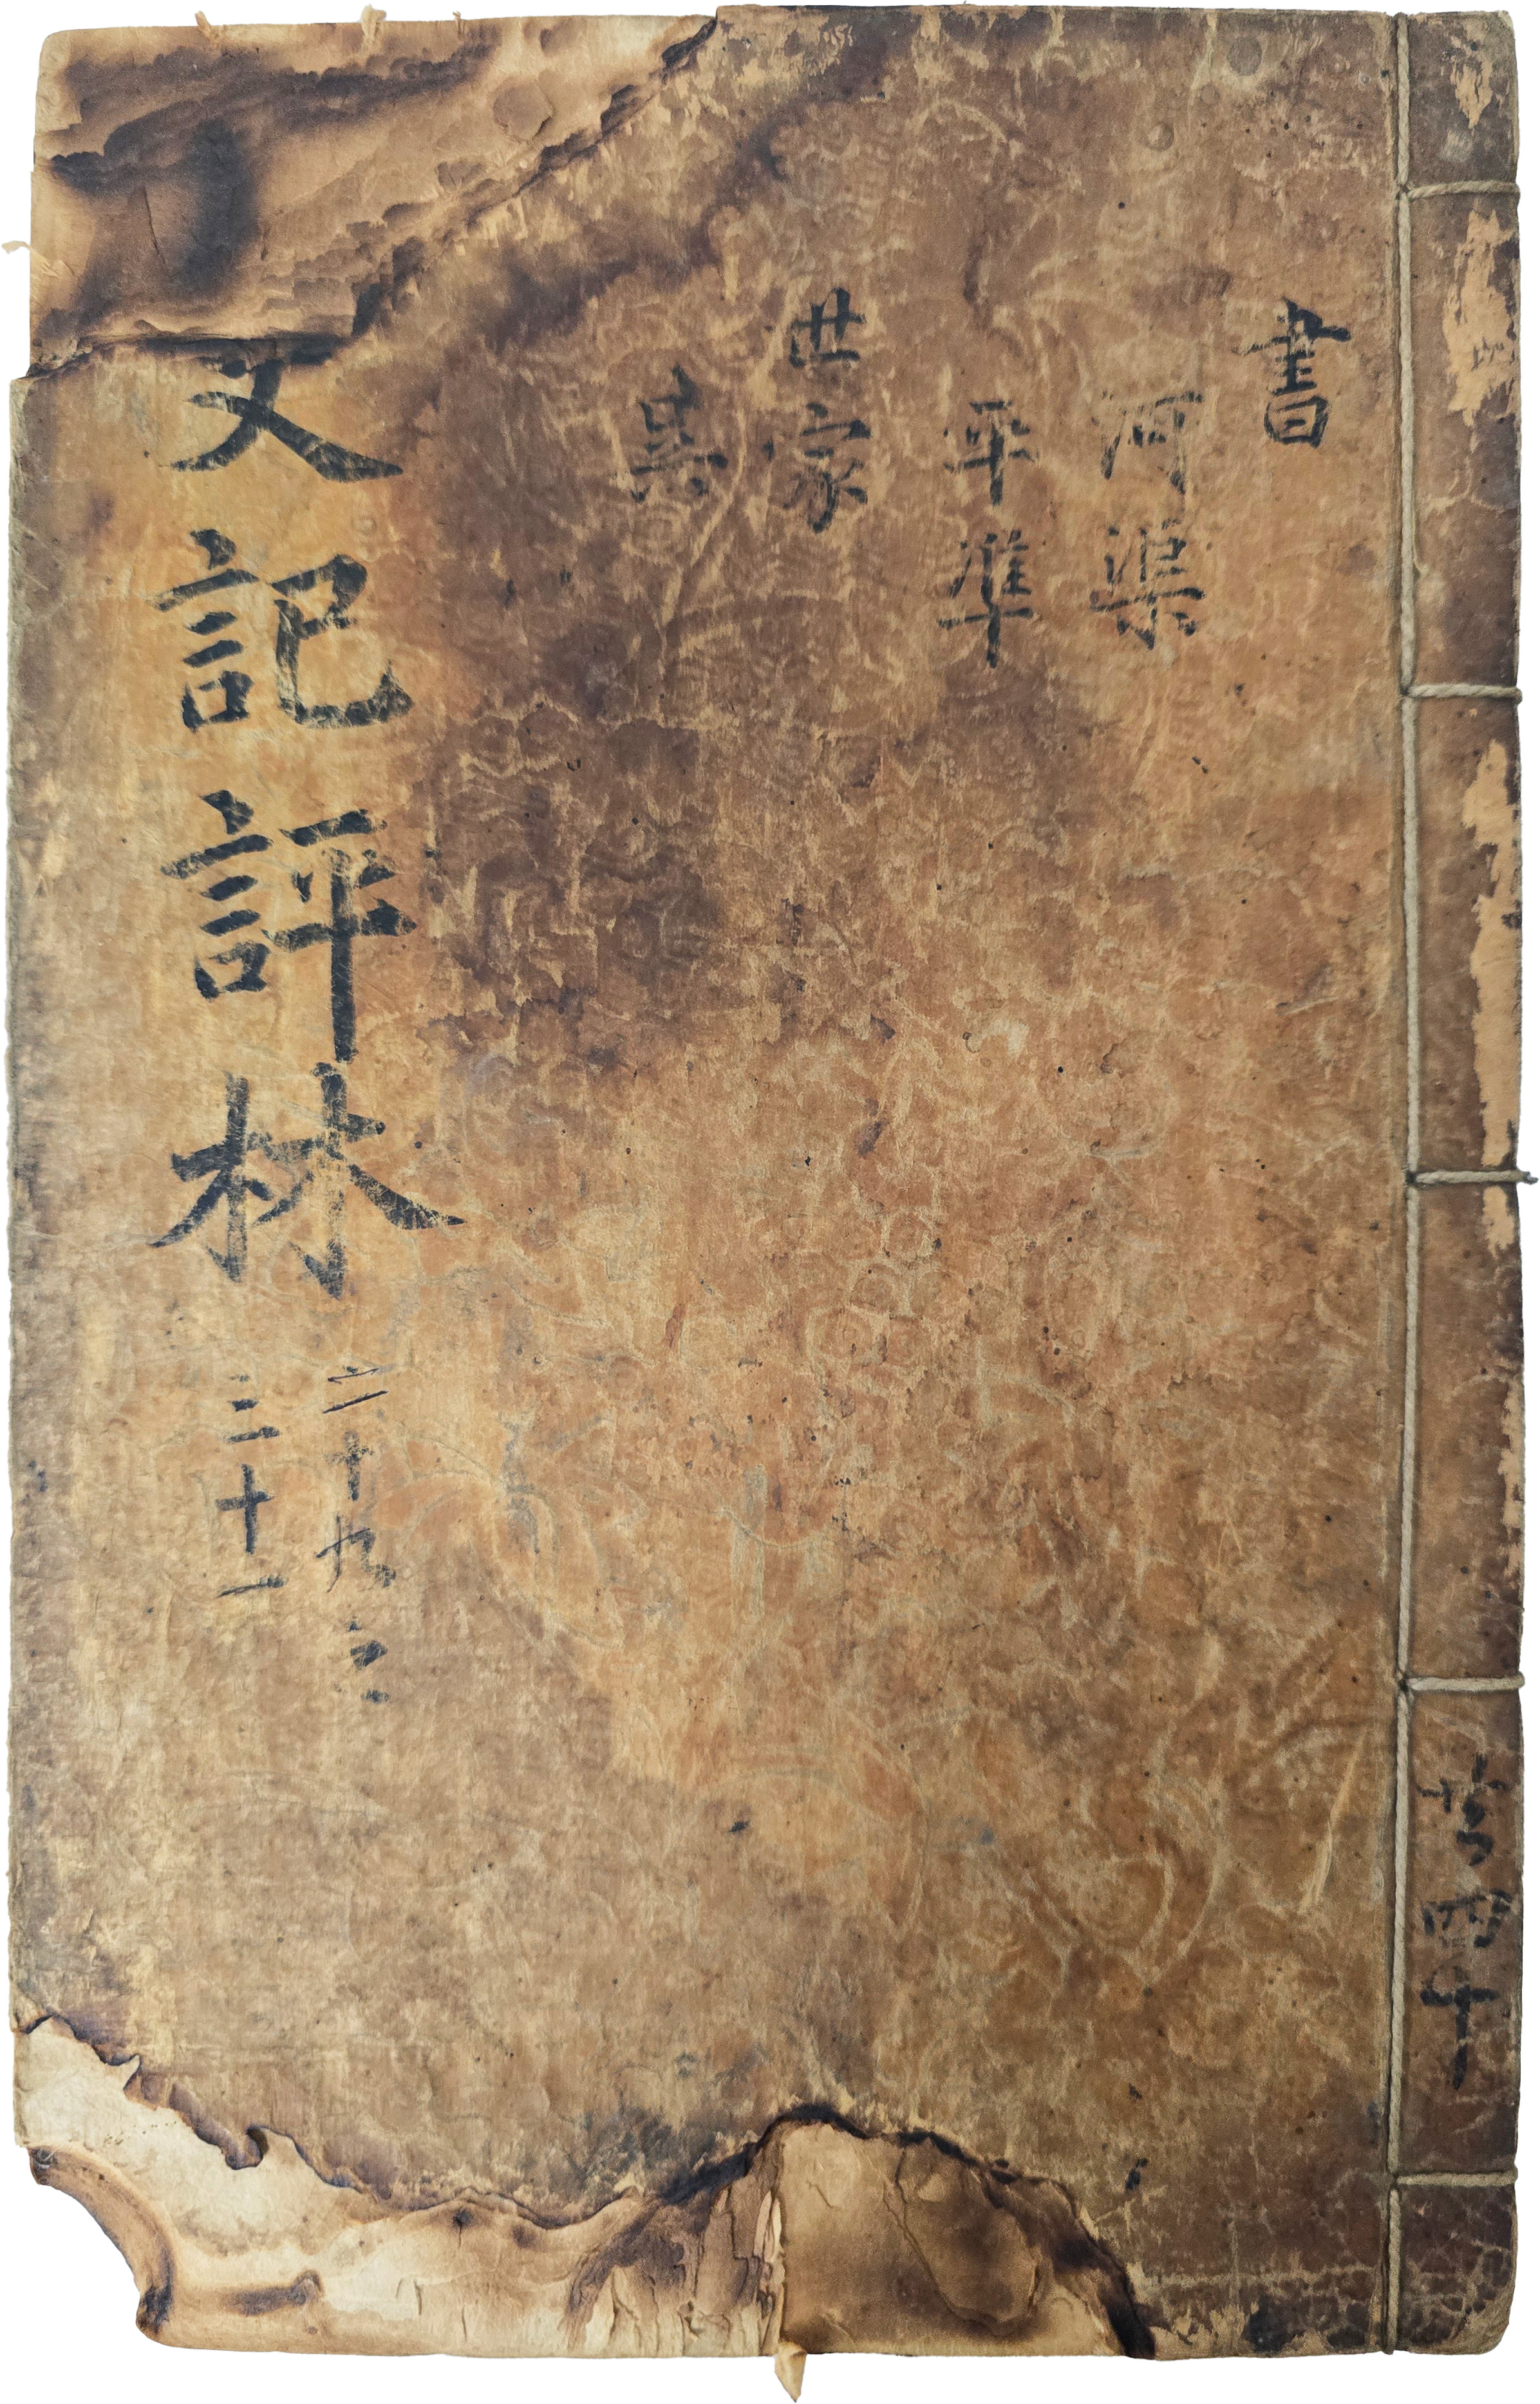 共四十
書
河渠
平準
世家
吳
史記評林
二十九之
三十一